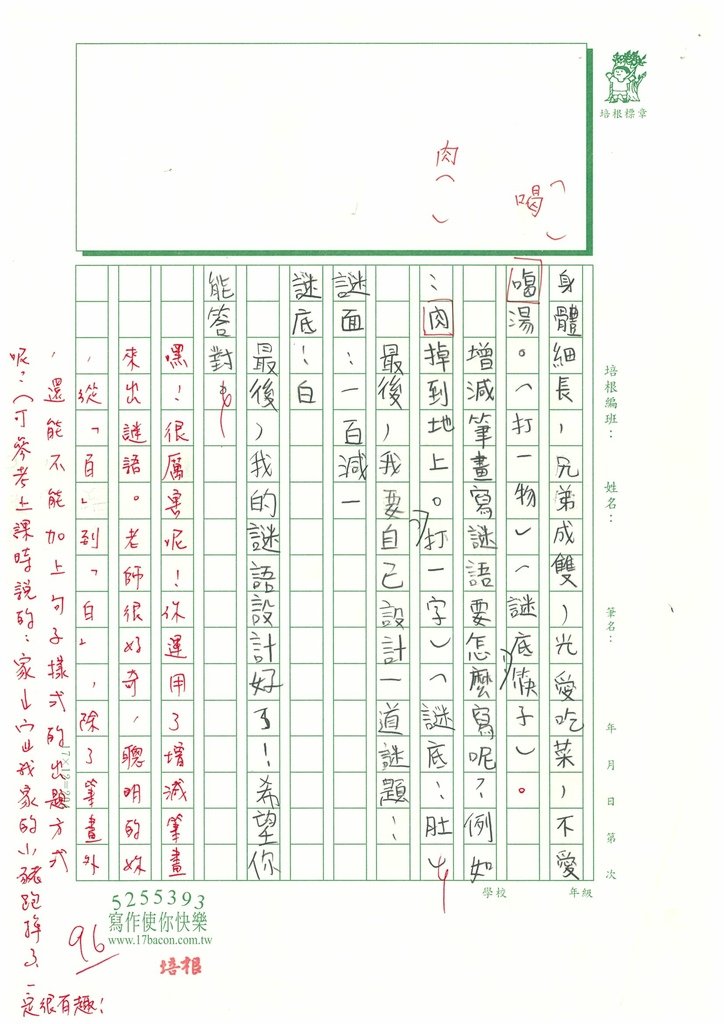 培根標章
肉（　）
喝（　）
培根編班：
姓名：
筆名：
年　月　日　第　次
學校
年級
身體細長，兄弟成雙，光愛吃菜，不愛
喝湯。（打一物）（謎底筷子）。
增減筆畫寫謎語要怎麼寫呢？例如
：肉掉到地上。打一字）（謎底：肚
最後，我要自己設計一道謎題：
謎面：一百減一
謎底：白
最後，我的謎語設計好了！希望你
能答對
嘿！很厲害呢！你運用了增減筆畫
來出謎語。老師很好奇，聰明的妳
，從「百」到「白」，除了筆畫外
，還能不能加上句子樣式的出題方式
呢？（可參考上課時說的：家
我家的小豬跑掉了
是很有趣！
96
17×12=204
5255393
寫作使你快樂
www.17bacon.com.tw
培根